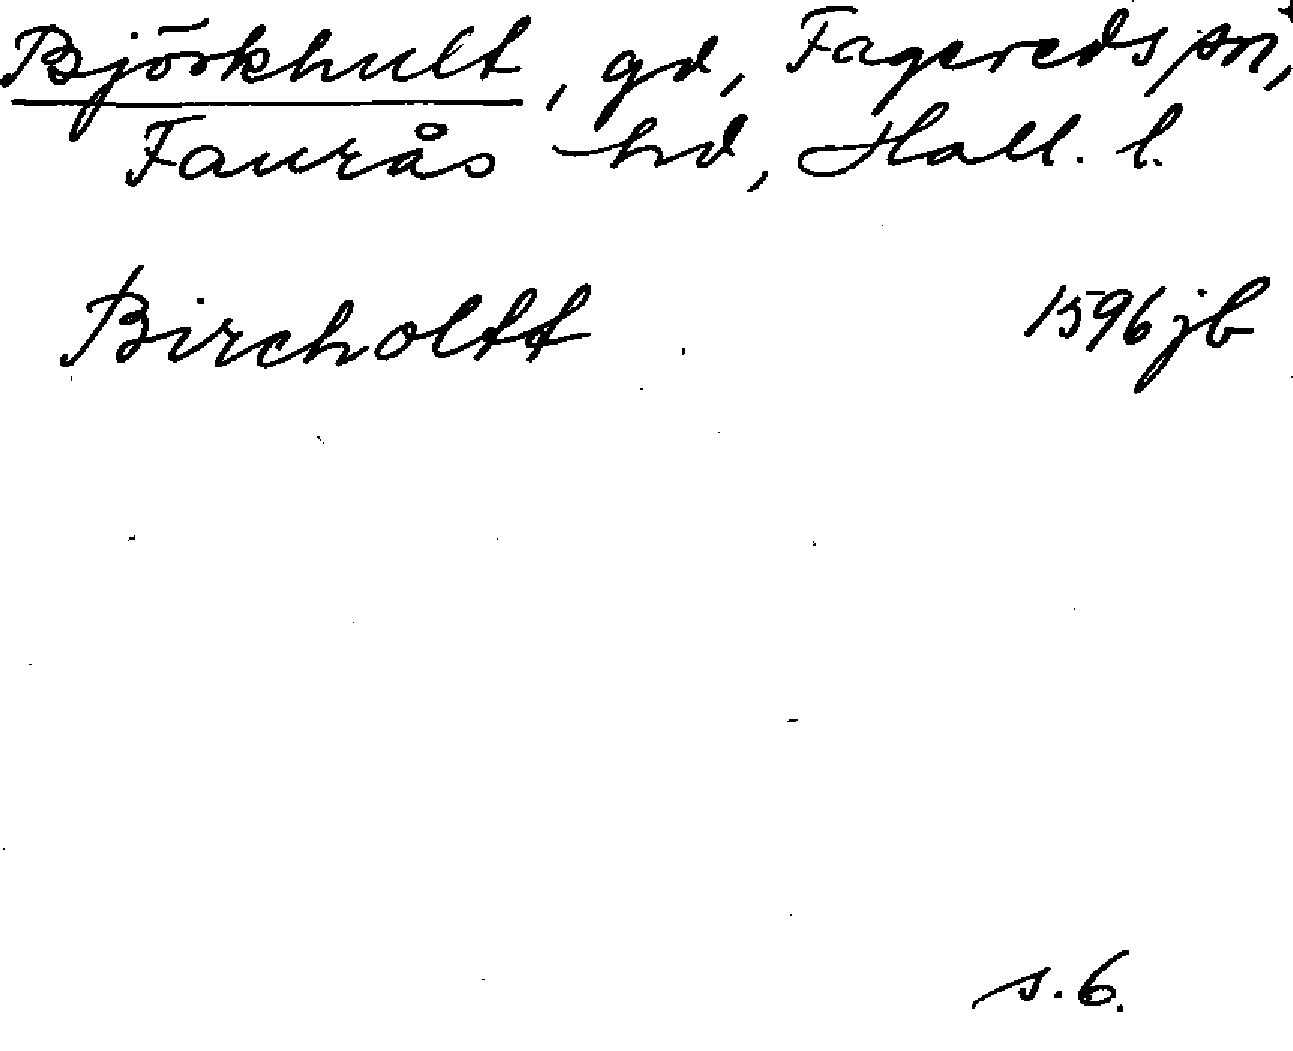 Björkhult, gd, Fagereds sn,
Faurås hd, Hall. l.
Bircholtt 1596 jb
s. 6.